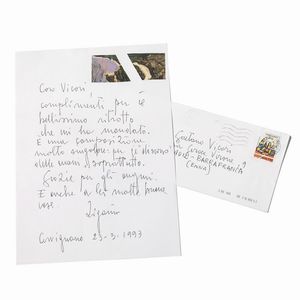 Caro Vicari,
complimenti per il
bellissimo ritratto
che mi ha mandato.
È una composizione
molto singolare per le
delle mani soprattutto.
Grazie per gli auguri.
E anche a lei molte buone
cose.
Cervignano 23-3-1993
Gaetano Vicari
BARRAFRANCA
(ENNA)